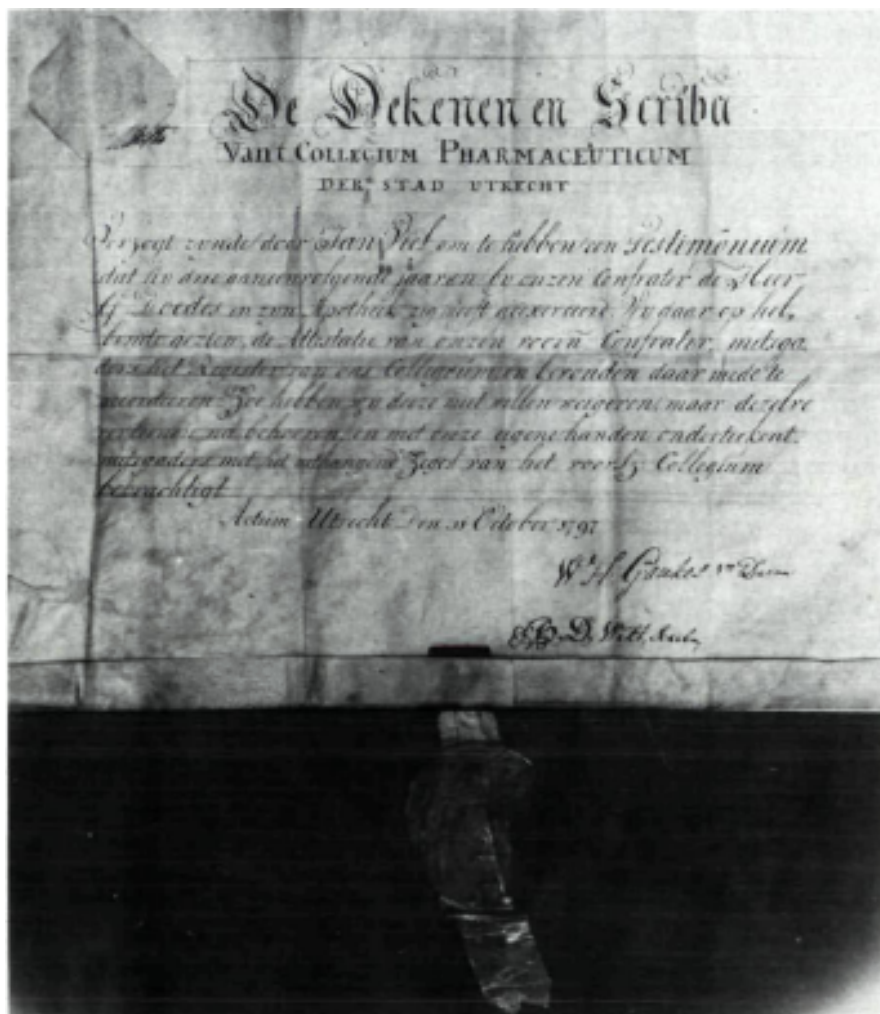 De Dekenen en Scriba
Van t COLLEGIUM PHARMACEUTICUM
DER STAD UTRECHT
Verzogt zynde door Jan om te hebben een Testimonium
dat hy drie aaneenvolgende jaaren by onzen Confrater de Heer
G Doedes in zyn Apotheek zig heeft geexerceerd. Wy daar op heb,
bende gezien, de Attestatie van onzen Confrater, mitsga,
ders het Register van ons Collegium en bevonden daar mede te
Zoo hebben wy deeze niet willen weigeren, maar dezelve
na behooren, en met onze eigene handen ondertekent
mitsgaders met het aanhangend Zegel van het voorsz Collegium
bekrachtigt
Actum Utrecht Den October 1797
W H
D